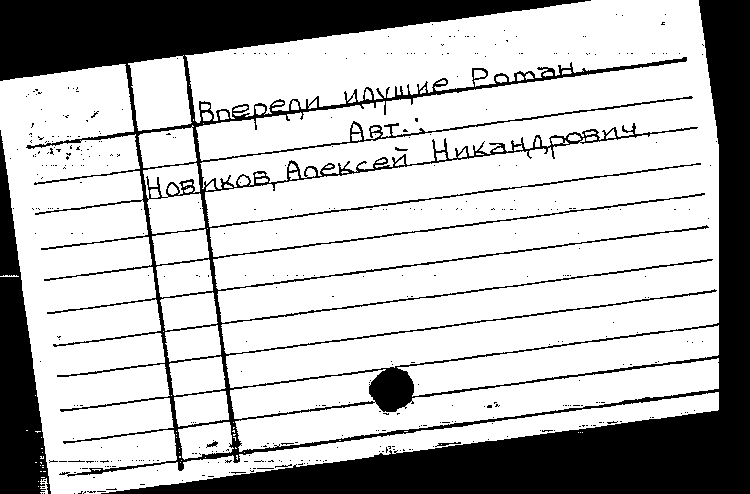 Впереди идущие Роман.
Авт.:
Новиков, Алексей Никандрович.